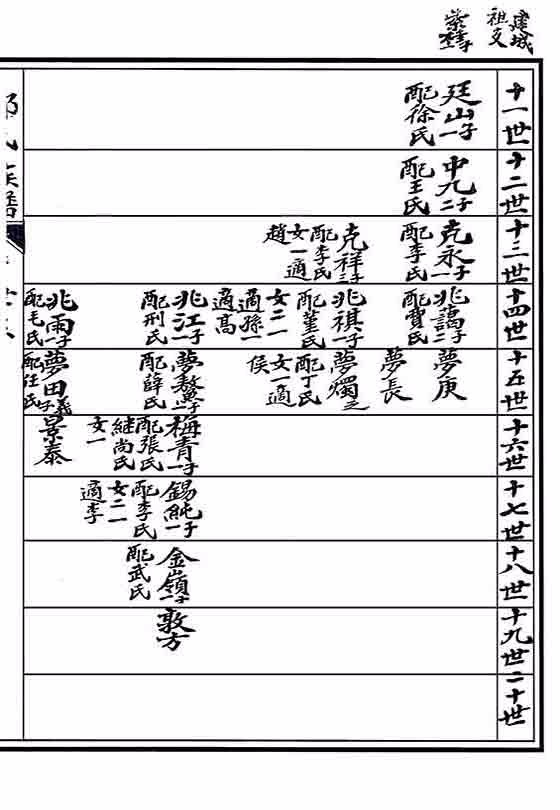 建城
祖父
十一世
廷山一子
配徐氏
十二世
中九二子
配王氏
十三世
克永一子
配李氏
克祥三子
配李氏
女一適
趙
十四世
兆藹二子
配賈氏
兆祺一子
配董氏
女二一
適孫一
適高
兆江一子
配刑氏
兆雨一子
配毛氏
十五世
夢庚
夢長
夢燭乏
配丁氏
女一適
侯
夢鰲一子
配薛氏
夢田義子
配任氏
十六世
梅青一子
配張氏
継尚氏
女一
景泰
十七世
錫純一子
配李氏
女二一
適李
十八世
金嶺一子
配武氏
十九世
敦方
二十世
氏族譜